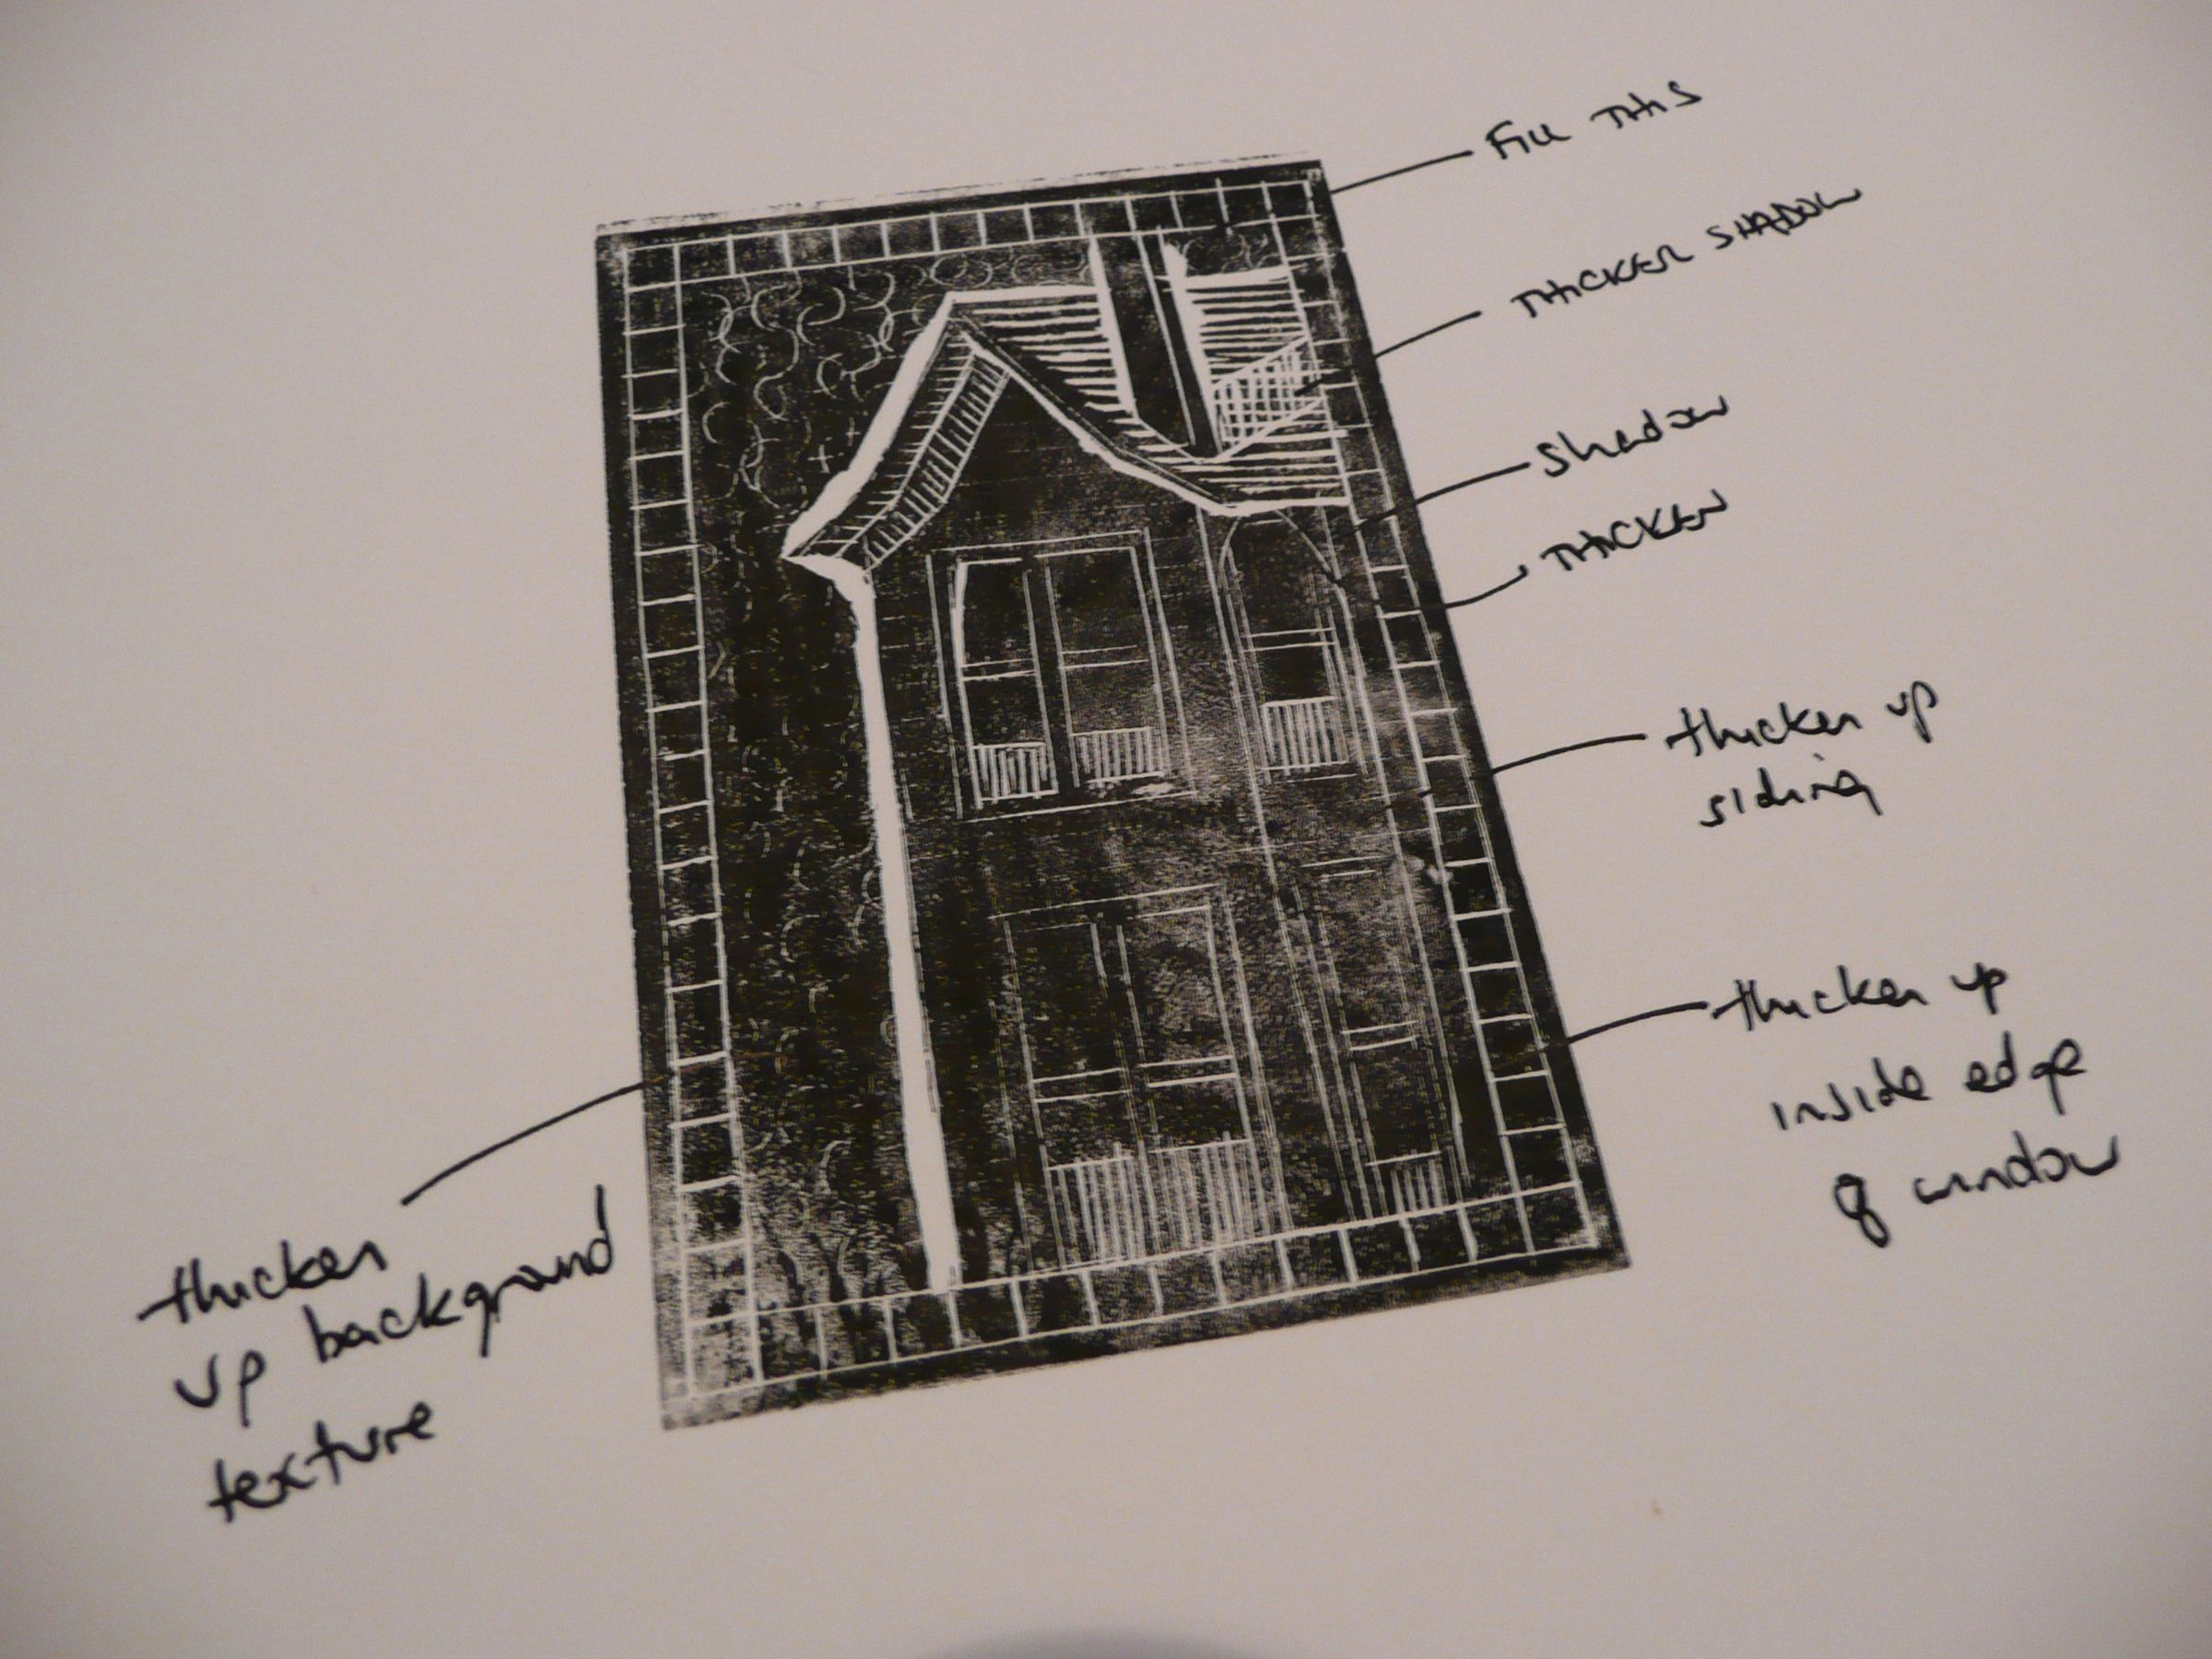 Fill THIS
THICKER SHADOW
shadow
THICKEN
thicken up
siding
thicken up
inside edge
of window
thicken
up background
texture